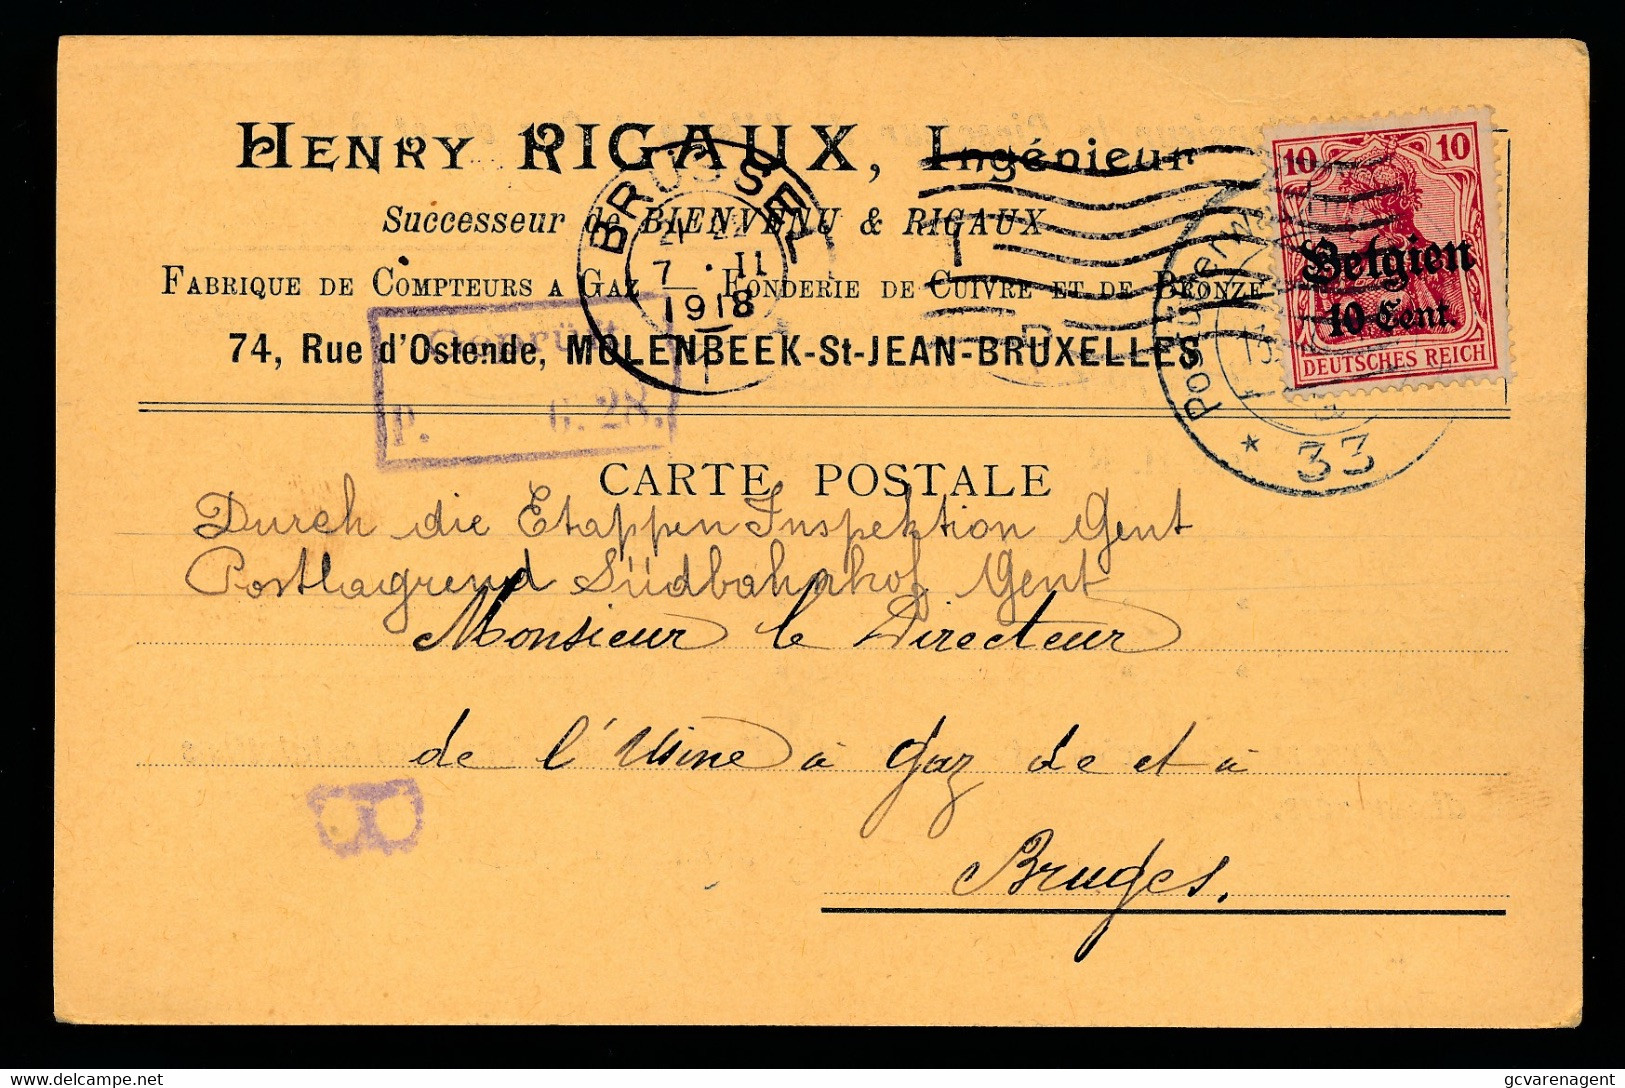 HENRY RIGAUX, Ingénieur
Successeur de BIENVENU & RIGAUX
FABRIQUE DE COMPTEURS A GAZ — FONDERIE DE CUIVRE ET DE BRONZE
74, Rue d'Ostende, MOLENBEEK-St-JEAN-BRUXELLES
BRÜSSEL
7 . II
1918
1
Geprüft
P. 6. 28.
10 10
Belgien
10 Cent.
DEUTSCHES REICH
Postüberw
* 33
CARTE POSTALE
Durch die Etappen Inspektion Gent
Postlagrend Südbahnhof Gent
Monsieur le Directeur
de l'Usine à gaz de et à
Bruges.
delcampe.net
gcvarenagent